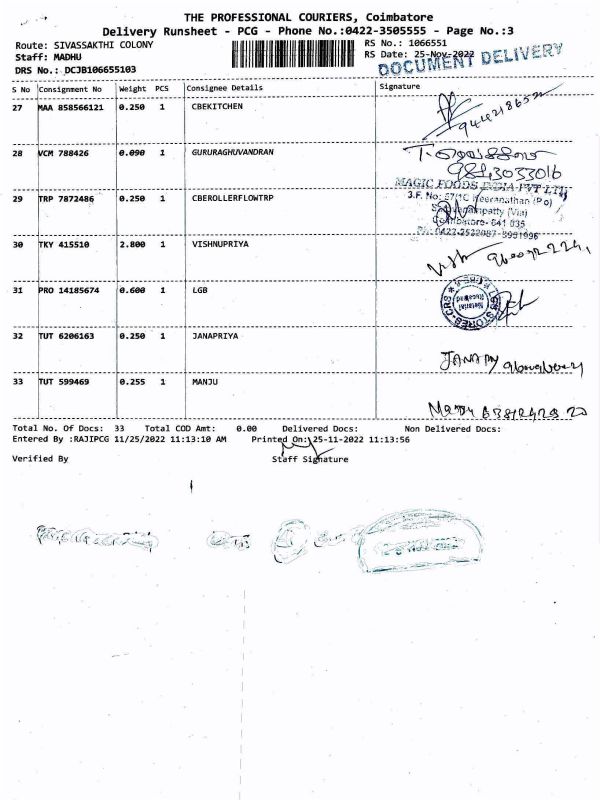 THE PROFESSIONAL COURIERS, Coimbatore
Delivery Runsheet - PCG - Phone No.:0422-3505555 - Page No.:3
Route: SIVASSAKTHI COLONY
RS No.: 1066551
Staff: MADHU
RS Date: 25-Nov-2022
DOCUMENT DELIVERY
DRS No.: DCJB106655103
S No Consignment No Weight PCS Consignee Details Signature
27 MAA 858566121 0.250 1 CBEKITCHEN
28 VCM 788426 0.090 1 GURURAGHUVANDRAN
MAGIC FOODS INDIA PVT LTD
29 TRP 7872486 0.250 1 CBEROLLERFLOWTRP
3.F. No: 57/1C Keeranathan (Po)
Coimbatore- 641 035
30 TKY 415510 2.800 1 VISHNUPRIYA
31 PRO 14185674 0.600 1 LGB
32 TUT 6206163 0.250 1 JANAPRIYA
33 TUT 599469 0.255 1 MANJU
Total No. Of Docs: 33 Total COD Amt: 0.00 Delivered Docs: Non Delivered Docs:
Entered By :RAJIPCG 11/25/2022 11:13:10 AM Printed On: 25-11-2022 11:13:56
Verified By Staff Signature